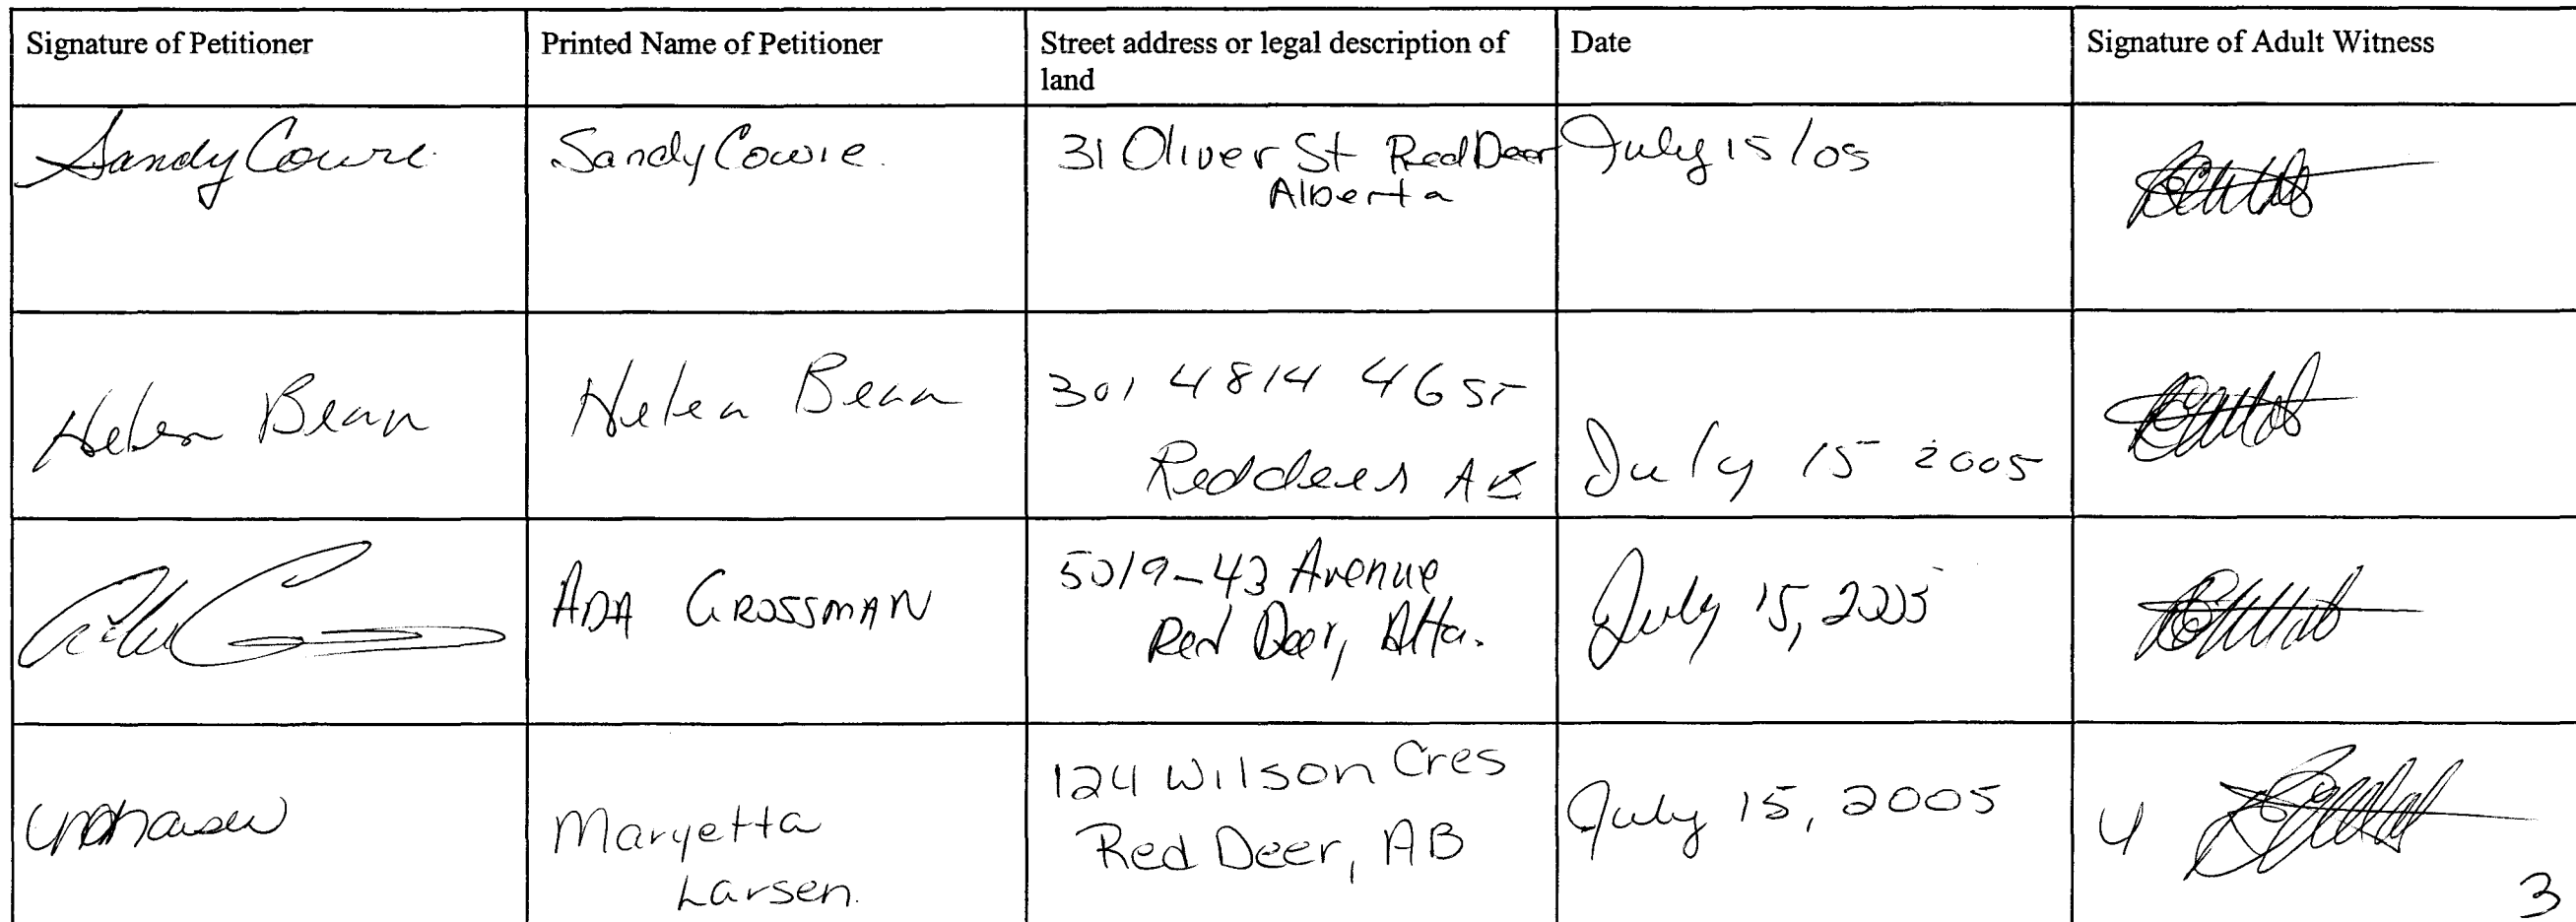 Signature of Petitioner
Printed Name of Petitioner
Street address or legal description of
land
Date
Signature of Adult Witness
Sandy Cowie
Sandy Cowie.
31 Oliver St Red Deer
Alberta
July 15/05
Helen Bean
Helen Bean
301 4814 46 ST
Red deer AB
July 15 2005
ADA GROSSMAN
5019-43 Avenue
Red Deer, Alta.
July 15, 2005
Maryetta
Larsen.
124 Wilson Cres
Red Deer, AB
July 15, 2005
4
3